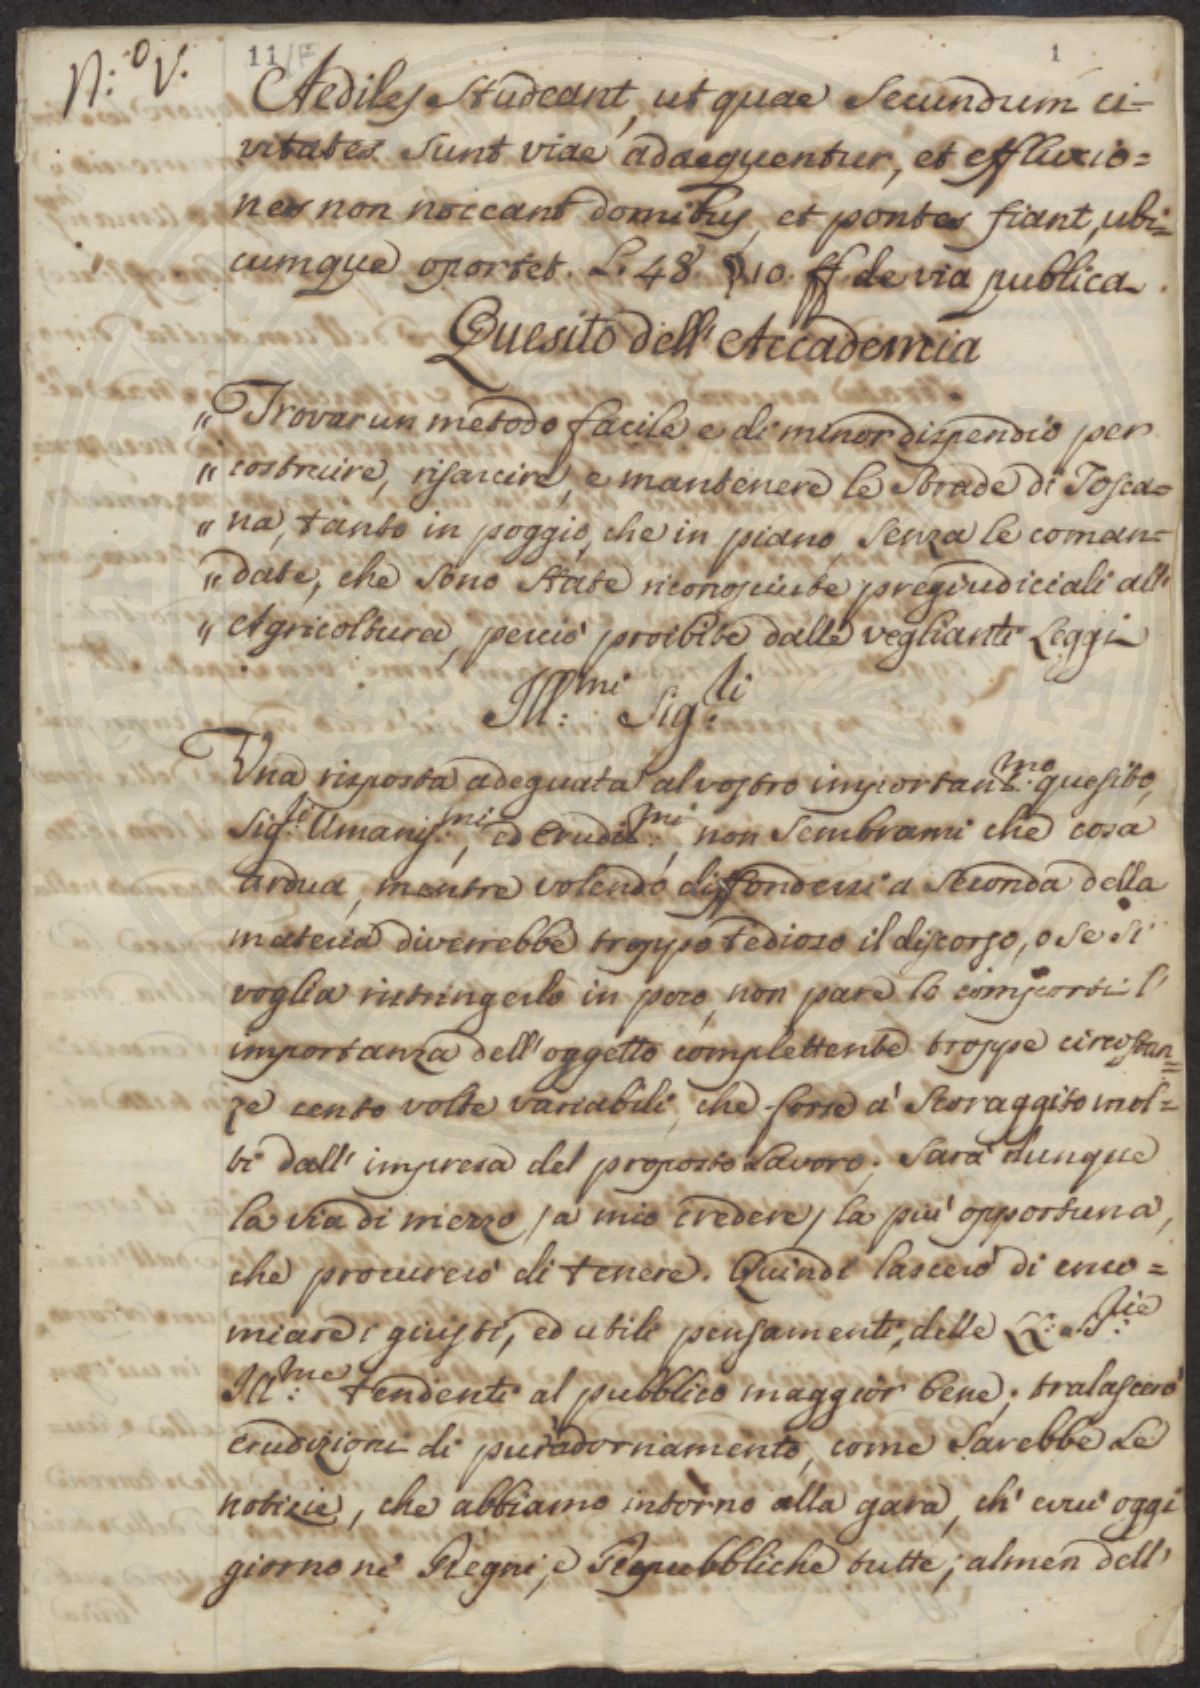 N:º V.
11/F
1
Aediles studeant, ut quae secundum ci-
vitates sunt viae adaequentur, et effluxio=
nes non noceant domibus, et pontes fiant, ubi=
cumque oportet. L. 48. § 10. ff de via publica.
Quesito dell' Accademia
" Trovar un metodo facile e di minor dispendio per
" costruire, risarcire, e mantenere le Strade di Tosca=
" na, tanto in poggio, che in piano, senza le coman=
" date, che sono state riconosciute pregiudiciali all'
" Agricoltura, perciò proibite dalle veglianti Leggi
Ill:mi Sig:li
Una risposta adeguata al vostro importan:mo quesito,
Sig:li Umanis:mi, ed Erudit:mi, non sembrami che cosa
ardua, mentre volendo diffondersi a seconda della
materia diverrebbe troppo tedioso il discorso, o se si
voglia ristringerlo in poco, non pare lo comporti l'
importanza dell' oggetto complettente troppe circostan=
ze cento volte variabili, che forse à scoraggito mol=
ti dall' impresa del proposto Lavoro. Sarà dunque
la via di mezzo / a mio credere / la più opportuna,
che procurerò di tenere. Quindi lascerò di enco=
miare i giusti, ed utili pensamenti, delle LL: SS:rie
Ill:me tendenti al pubblico maggior bene; tralascerò
erudizioni di pur' adornamento, come sarebbe Le
notizie, che abbiamo intorno alla gara, ch' evvi oggi
giorno ne' Regni, e Repubbliche tutte, almen dell'